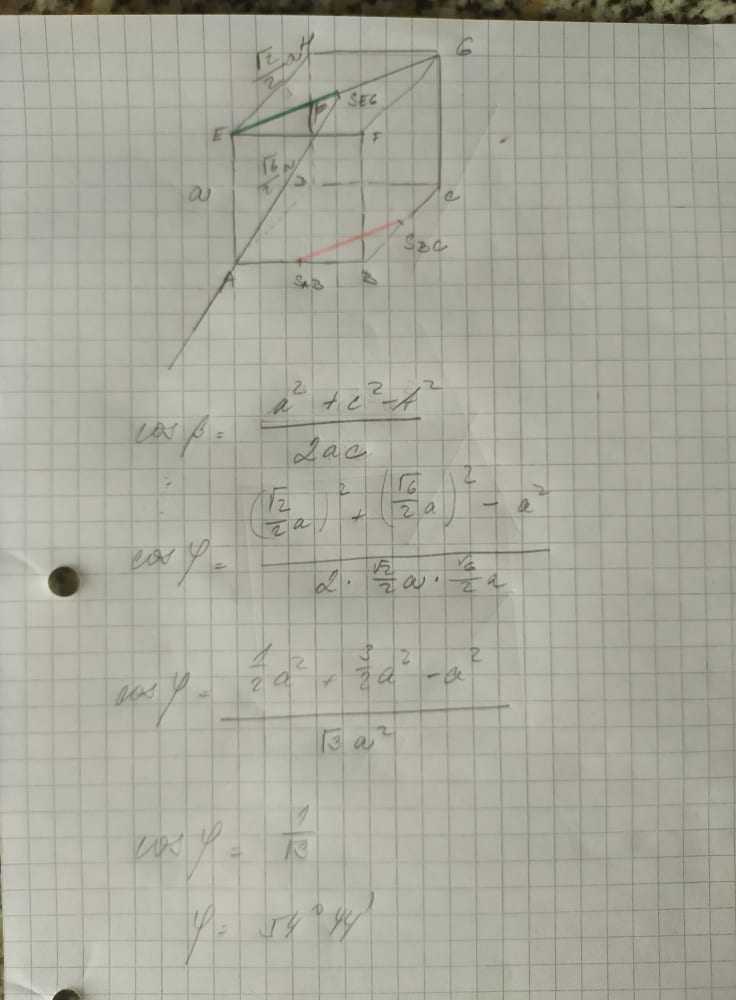 H
G
√2/2 a
S_EG
E
φ
F
√6/2 a
D
a
C
S_BC
A
S_AB
B
cos β = (a² + c² - b²) / 2ac
:
cos φ = ((√2/2 a)² + (√6/2 a)² - a²) / (2 · √2/2 a · √6/2 a)
cos φ = (1/2 a² + 3/2 a² - a²) / (√3 a²)
cos φ = 1/√3
φ = 54° 44'